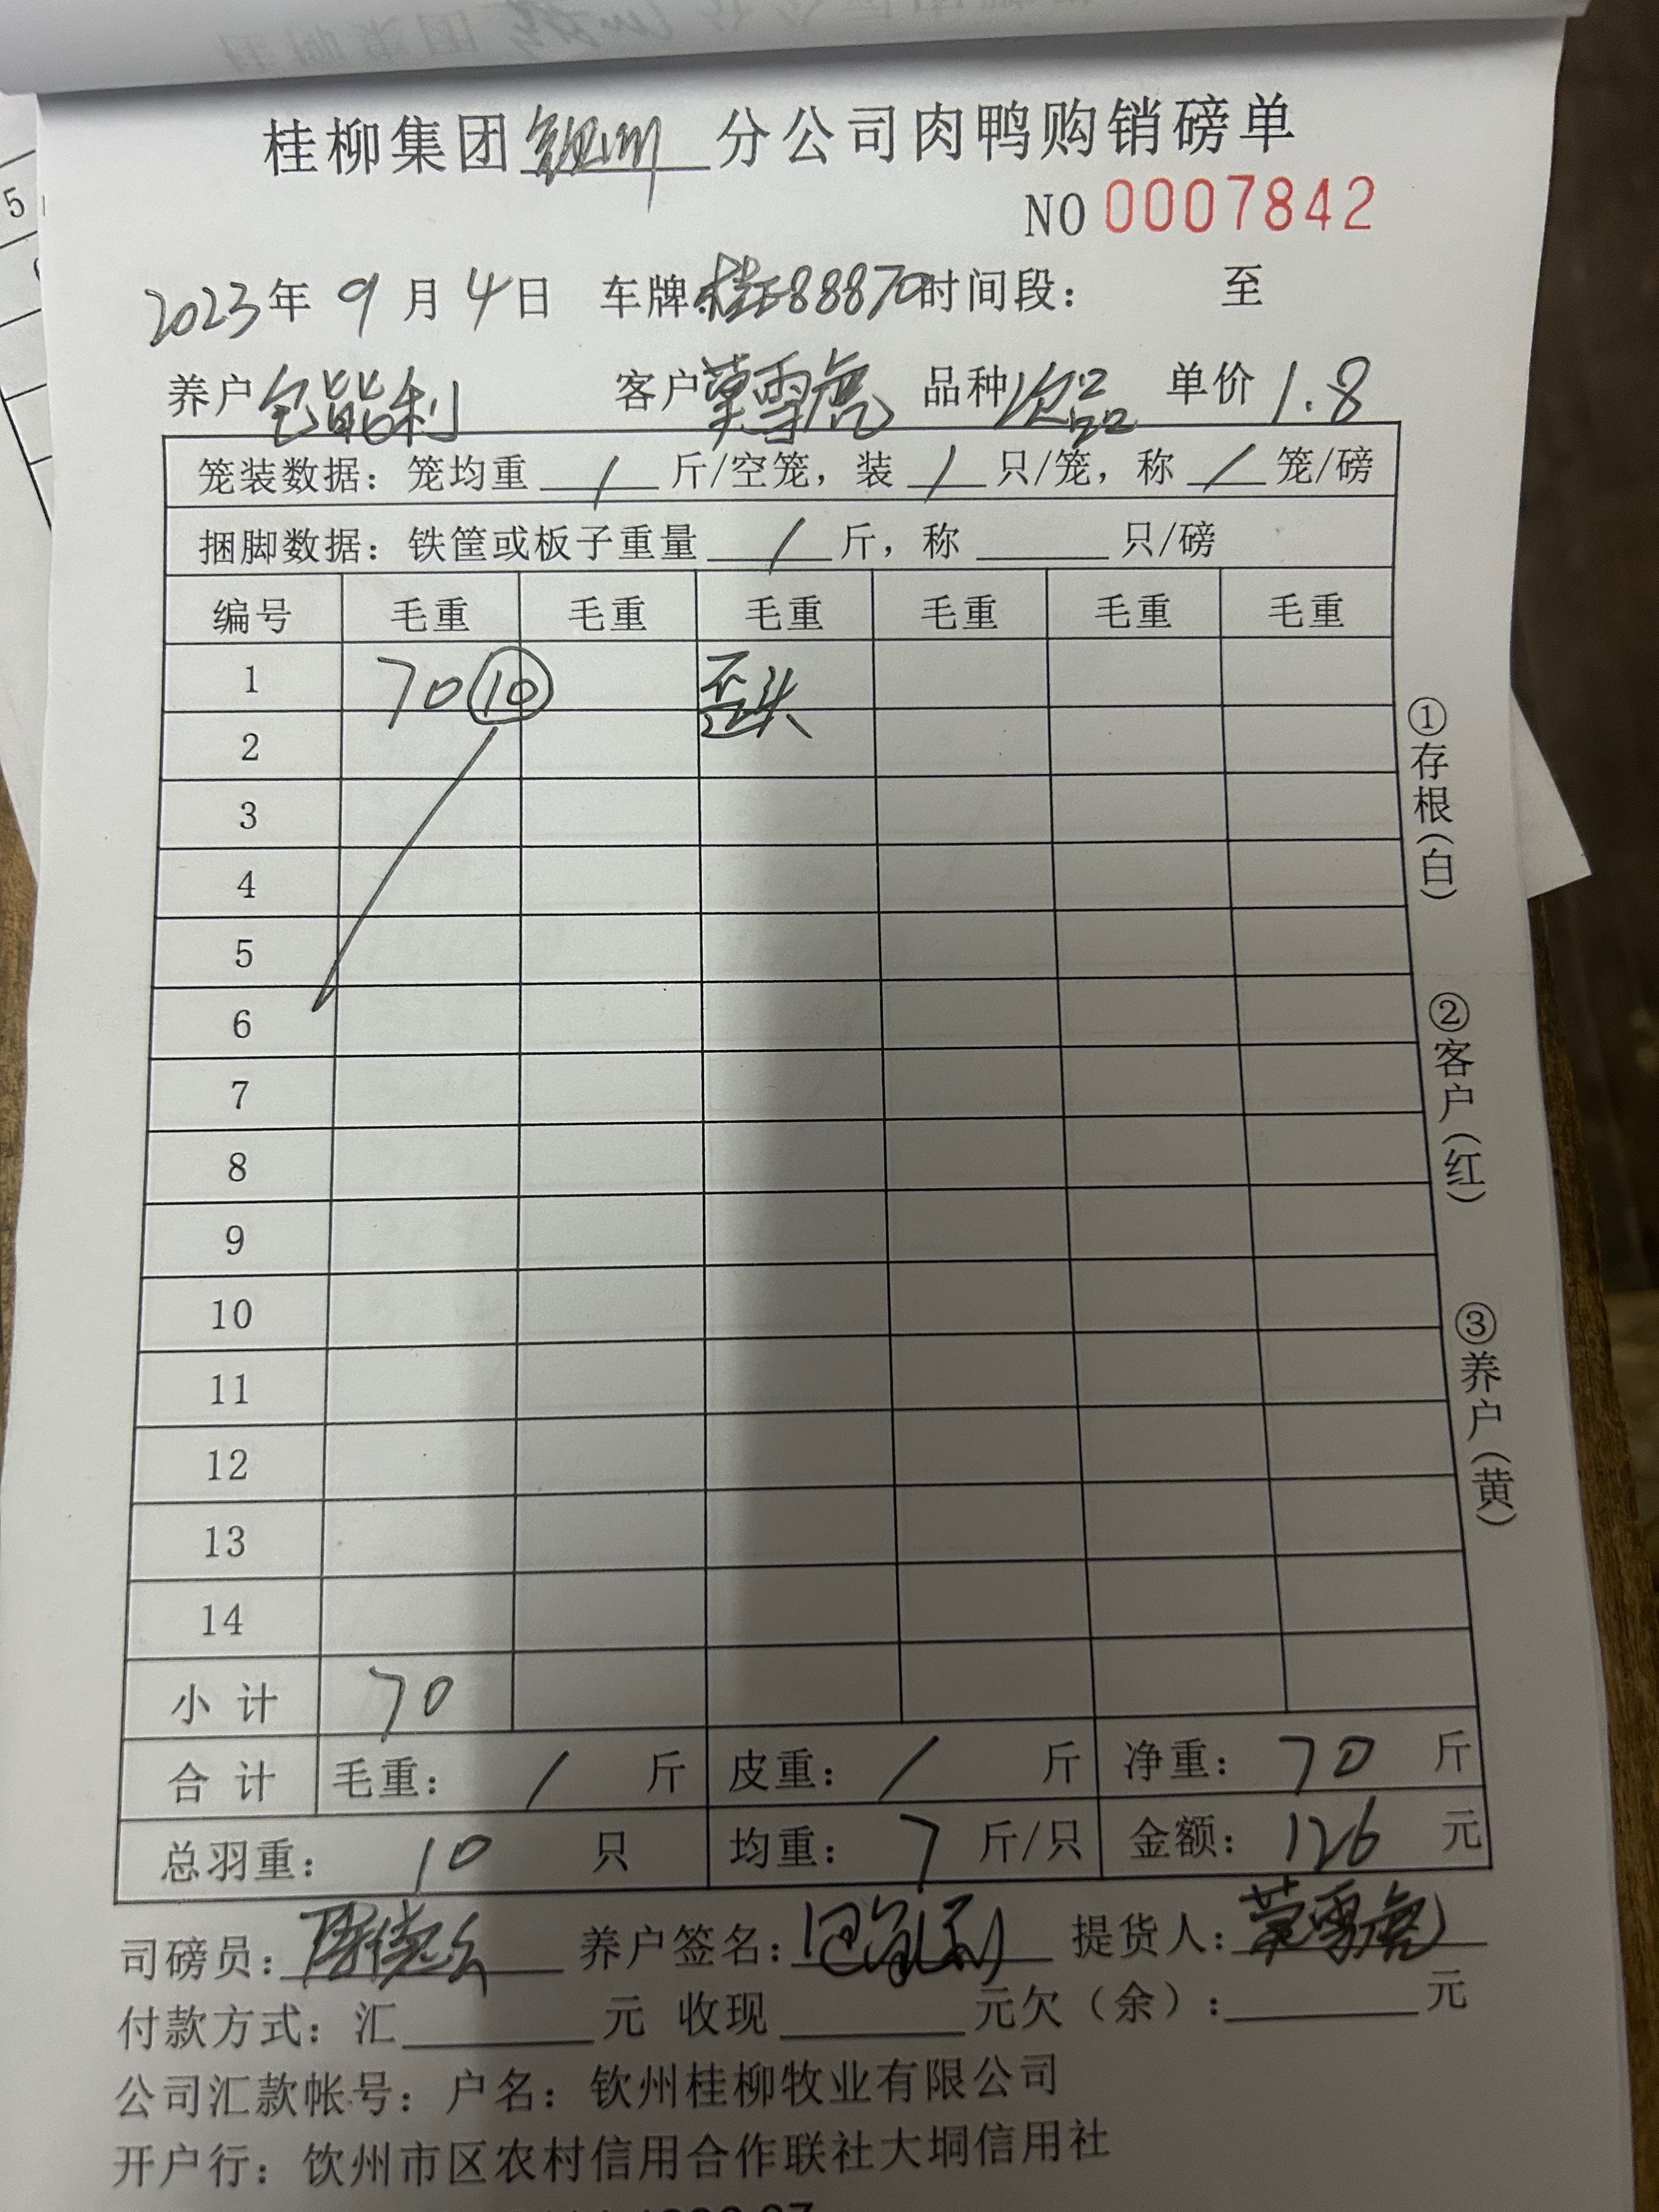 桂柳集团钦州分公司肉鸭购销磅单
NO 0007842
2023年 9月 4日 车牌:桂E88870 时间段: 至
养户 包能利 客户 莫雪虎 品种 次品 单价 1.8
笼装数据: 笼均重 / 斤/空笼, 装 / 只/笼, 称 / 笼/磅
捆脚数据: 铁筐或板子重量 / 斤, 称 只/磅
编号 毛重 毛重 毛重 毛重 毛重 毛重
1 70 ⑩ 歪头
2
3
4
5
6
7
8
9
10
11
12
13
14
小计 70
合计 毛重: / 斤 皮重: / 斤 净重: 70 斤
总羽重: 10 只 均重: 7 斤/只 金额: 126 元
司磅员: 养户签名: 包能利 提货人: 莫雪虎
付款方式: 汇 元 收现 元欠(余): 元
公司汇款帐号: 户名: 钦州桂柳牧业有限公司
开户行: 钦州市区农村信用合作联社大垌信用社
①存根(白)
②客户(红)
③养户(黄)
5